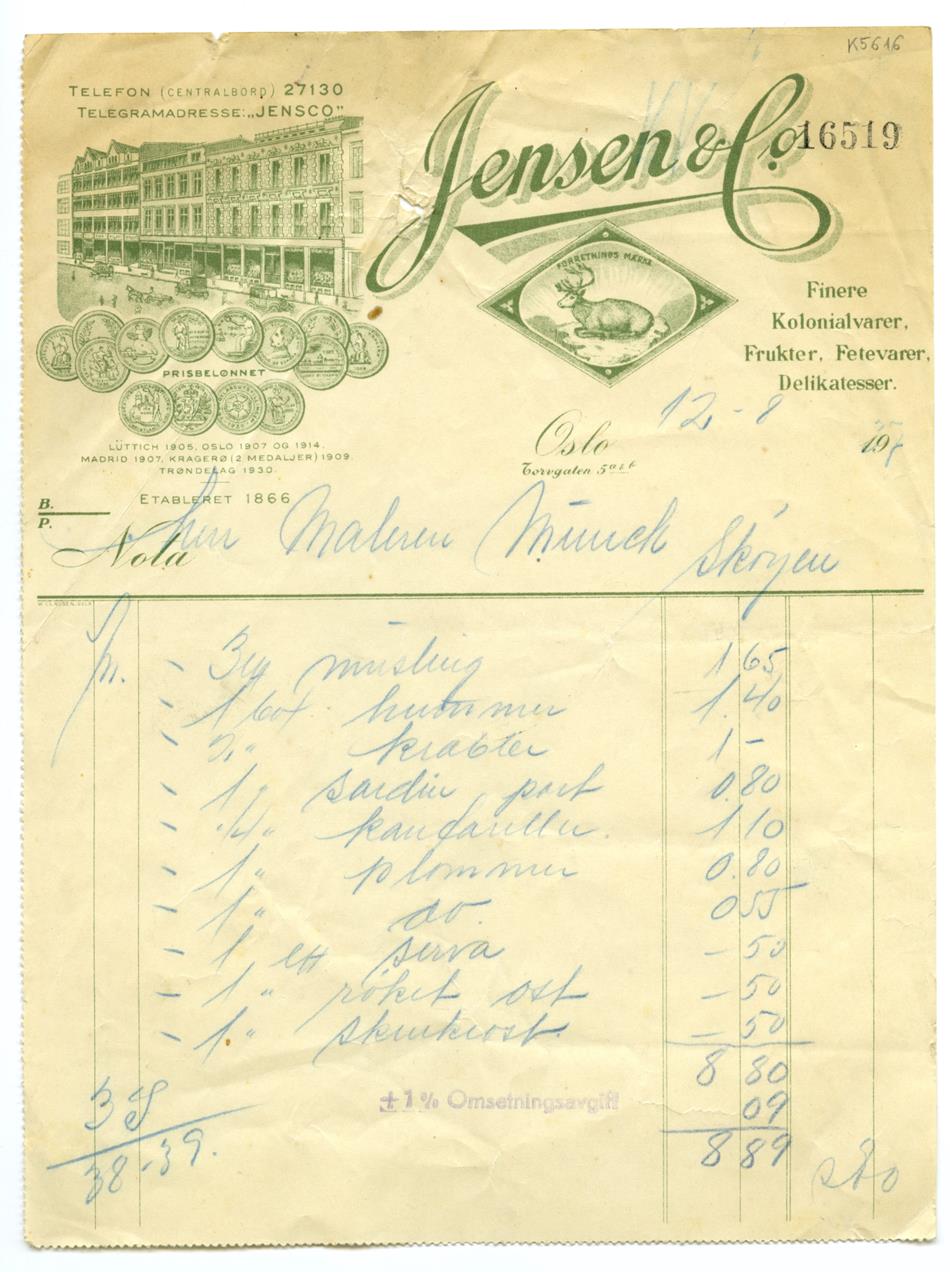 K5616
TELEFON (CENTRALBORD) 27130
TELEGRAMADRESSE: „JENSCO"
Jensen & Co.
16519
FORRETNINGS MÆRKE
Finere
Kolonialvarer,
Frukter, Fetevarer,
Delikatesser.
PRISBELØNNET
LÜTTICH 1905, OSLO 1907 OG 1914,
MADRID 1907, KRAGERØ (2 MEDALJER) 1909.
TRØNDELAG 1930.
ETABLERET 1866
Oslo 12 - 8 19
Torvgaten 5 a & b
B.
P.
Nota Herr Maleren Munch Skøyen
musling 1 65
- 1 box hummer 1.40
- krabber 1 -
- 1 " sardin port 0.80
- " kantareller. 1 10
- 1 " plommer 0.80
- 1 " do. 0 55
- 1 ett serva - 50
- 1 " røket ost - 50
- 1 " skinkeost - 50
8 80
+ 1 % Omsetningsavgift 09
8 89
38-39.